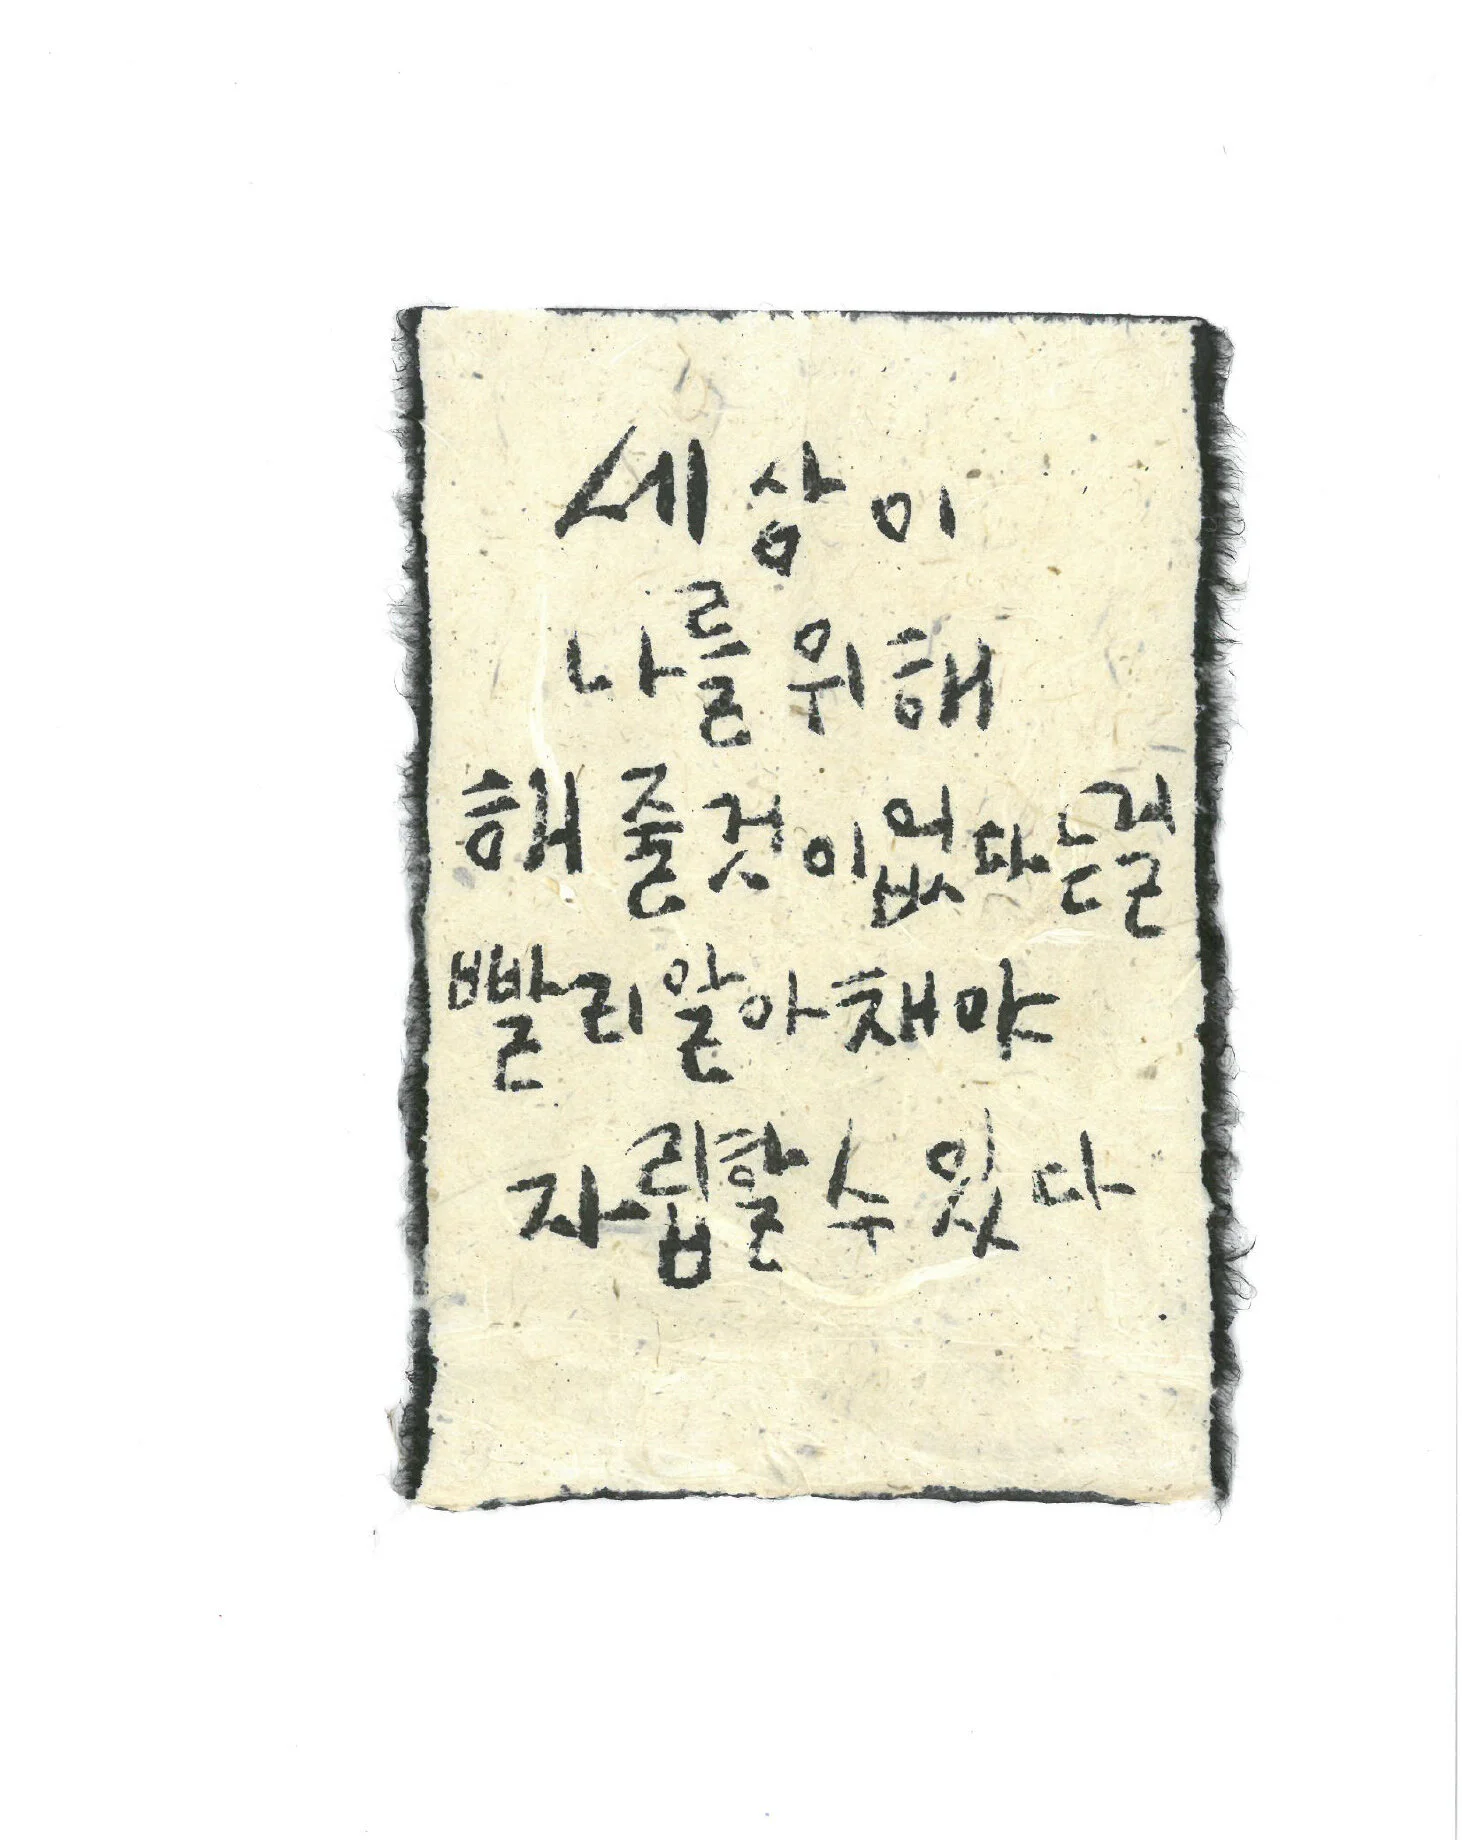 세상이
나를 위해
해 줄것이없다는걸
빨리알아채야
자립할 수 있다